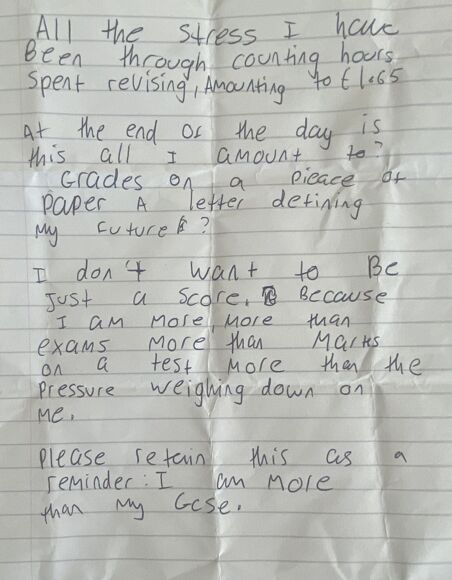 All the stress I have
Been through counting hours
Spent revising, Amounting to £1.65
At the end of the day is
this all I amount to?
Grades on a pieace of
paper A letter defining
My future?
I don't want to Be
Just a score, Because
I am more, more than
exams more than Marks
on a test more than the
pressure weighing down on
me.
please retain this as a
reminder: I am more
than my Gcse.